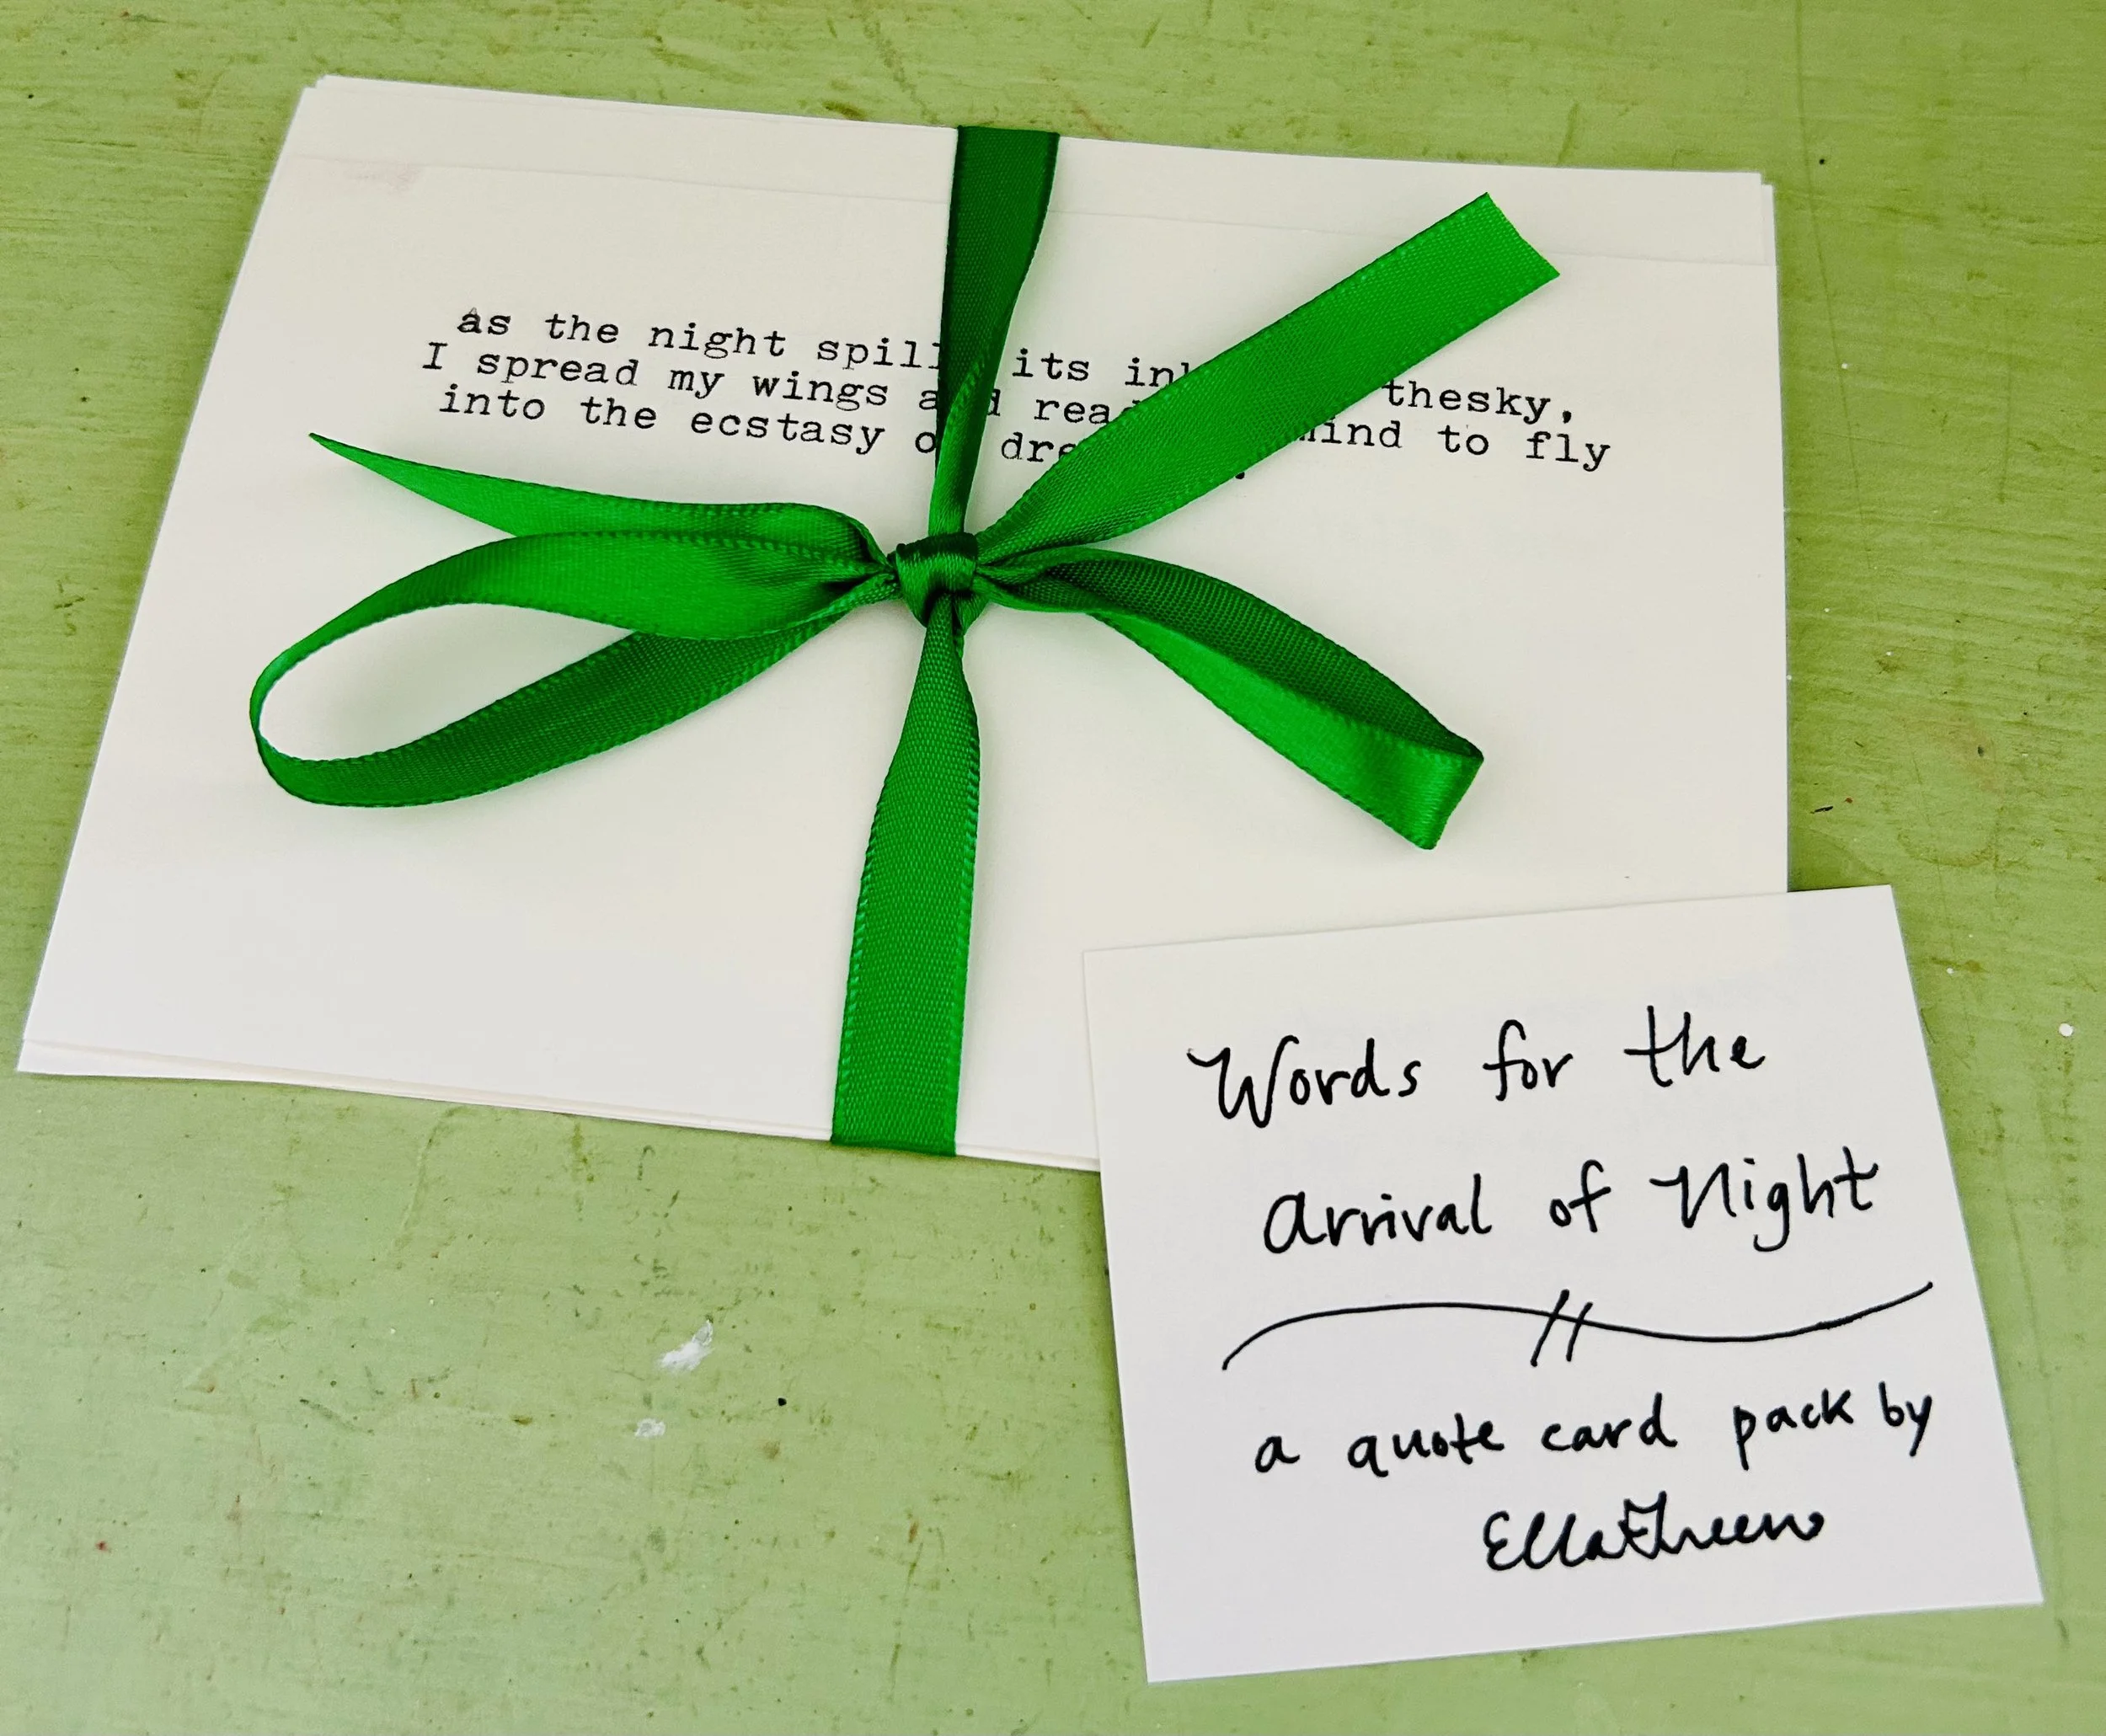 as the night spill its in thesky,
I spread my wings a d rea mind to fly
into the ecstasy o dre .
Words for the
Arrival of Night
a quote card pack by